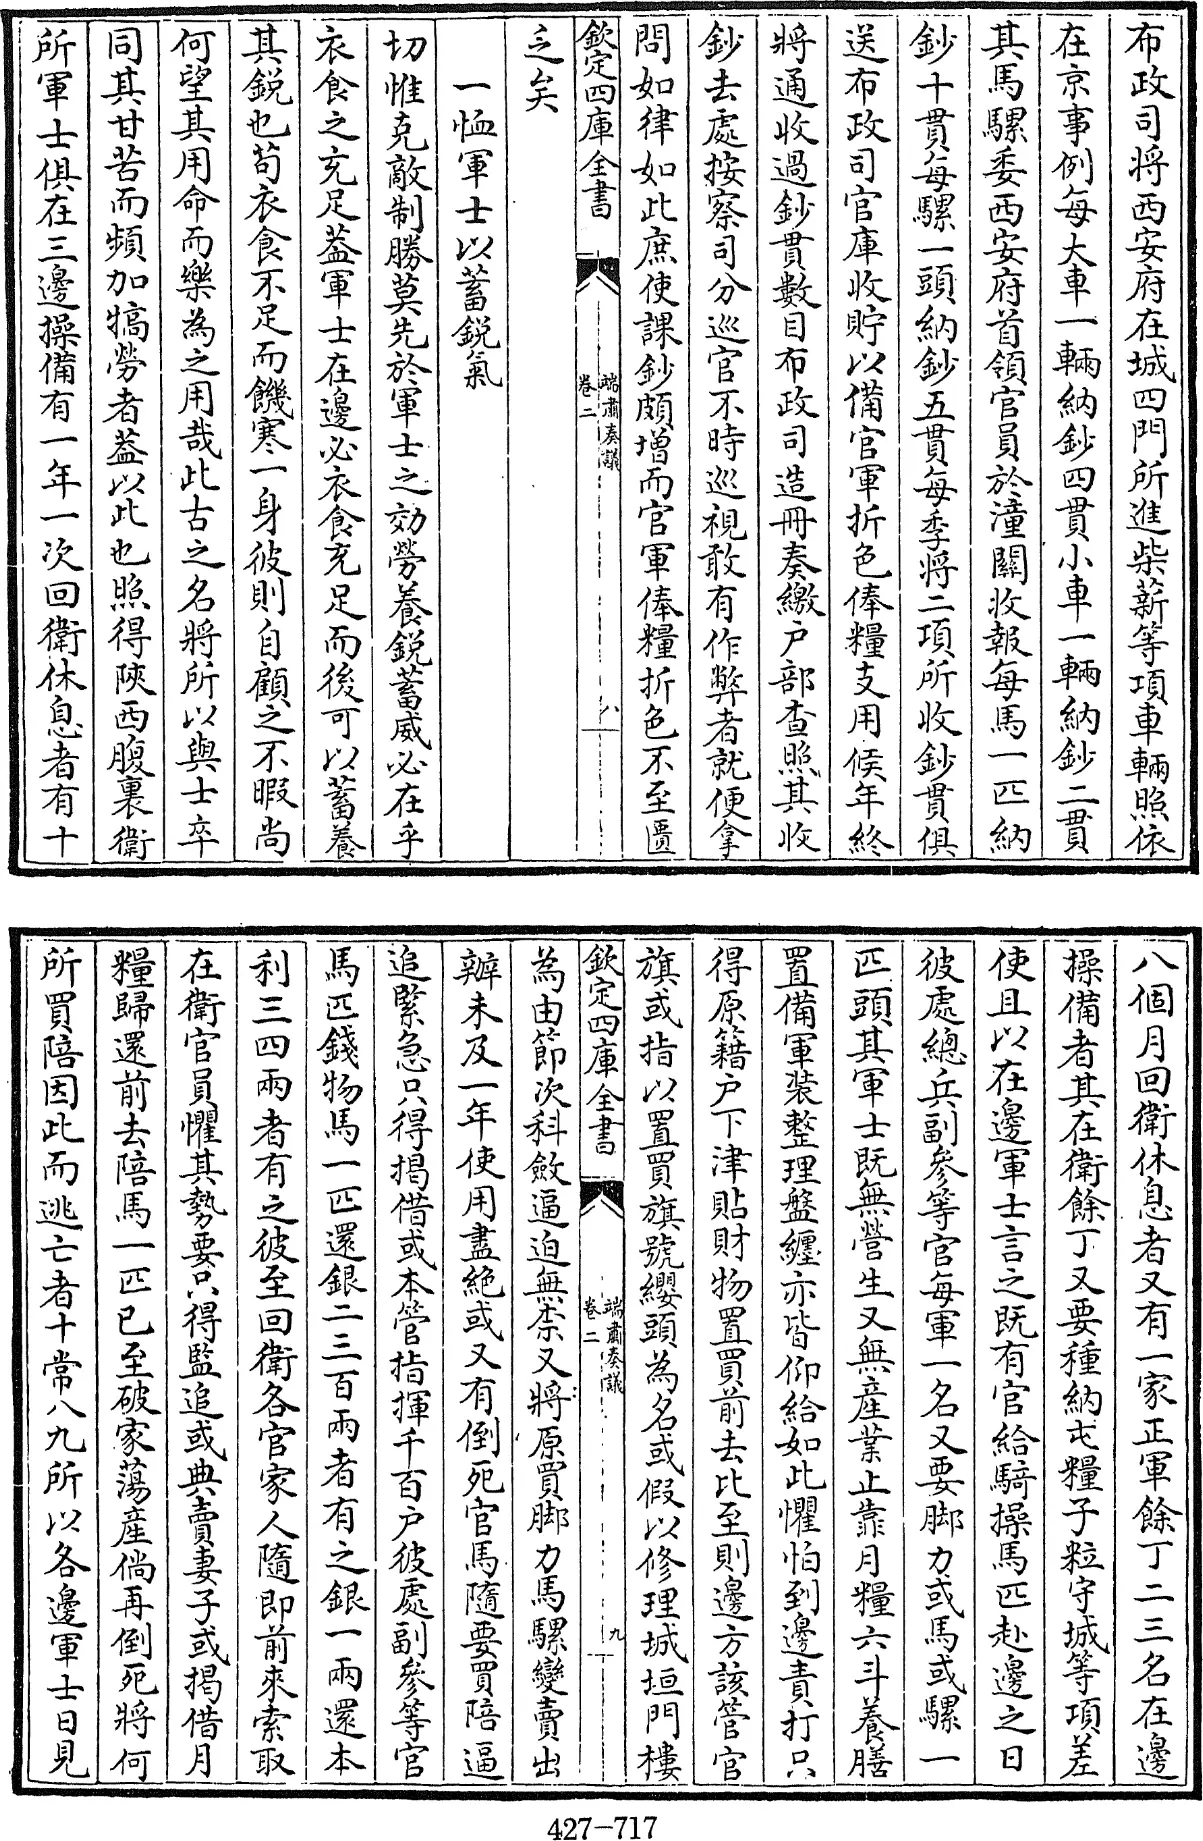 布政司將西安府在城四門所進柴薪等項車輛照依
在京事例每大車一輛納鈔四貫小車一輛納鈔二貫
其馬騾委西安府首領官員於潼關收報每馬一匹納
鈔十貫每騾一頭納鈔五貫每季將二項所收鈔貫俱
送布政司官庫收貯以備官軍折色俸糧支用候年終
將通收過鈔貫數目布政司造冊奏繳户部查照其收
鈔去處按察司分巡官不時巡視敢有作弊者就便拿
問如律如此庶使課鈔頗增而官軍俸糧折色不至匱
欽定四庫全書
端肅奏議
卷二
八
乏矣
一恤軍士以蓄銳氣
切惟克敵制勝莫先於軍士之効勞養銳蓄威必在乎
衣食之充足葢軍士在邊必衣食充足而後可以蓄養
其銳也苟衣食不足而饑寒一身彼則自顧之不暇尚
何望其用命而樂為之用哉此古之名將所以與士卒
同其甘苦而頻加犒勞者葢以此也照得陝西腹裏衛
所軍士俱在三邊操備有一年一次回衛休息者有十
八個月回衛休息者又有一家正軍餘丁二三名在邊
操備者其在衛餘丁又要種納屯糧子粒守城等項差
使且以在邊軍士言之既有官給騎操馬匹赴邊之日
彼處總兵副參等官每軍一名又要脚力或馬或騾一
匹頭其軍士既無營生又無產業止靠月糧六斗養膳
置備軍裝整理盤纏亦皆仰給如此懼怕到邊責打只
得原籍户下津貼財物置買前去比至則邊方該管官
旗或指以置買旗號纓頭為名或假以修理城垣門樓
欽定四庫全書
端肅奏議
卷二
九
為由節次科斂逼迫無柰又將原買脚力馬騾變賣出
辦未及一年使用盡絶或又有倒死官馬隨要買陪逼
追緊急只得揭借或本管指揮千百户彼處副參等官
馬匹錢物馬一匹還銀二三百兩者有之銀一兩還本
利三四兩者有之彼至回衛各官家人隨即前來索取
在衛官員懼其勢要只得監追或典賣妻子或揭借月
糧歸還前去陪馬一匹已至破家蕩產倘再倒死將何
所買陪因此而逃亡者十常八九所以各邊軍士日見
427-717